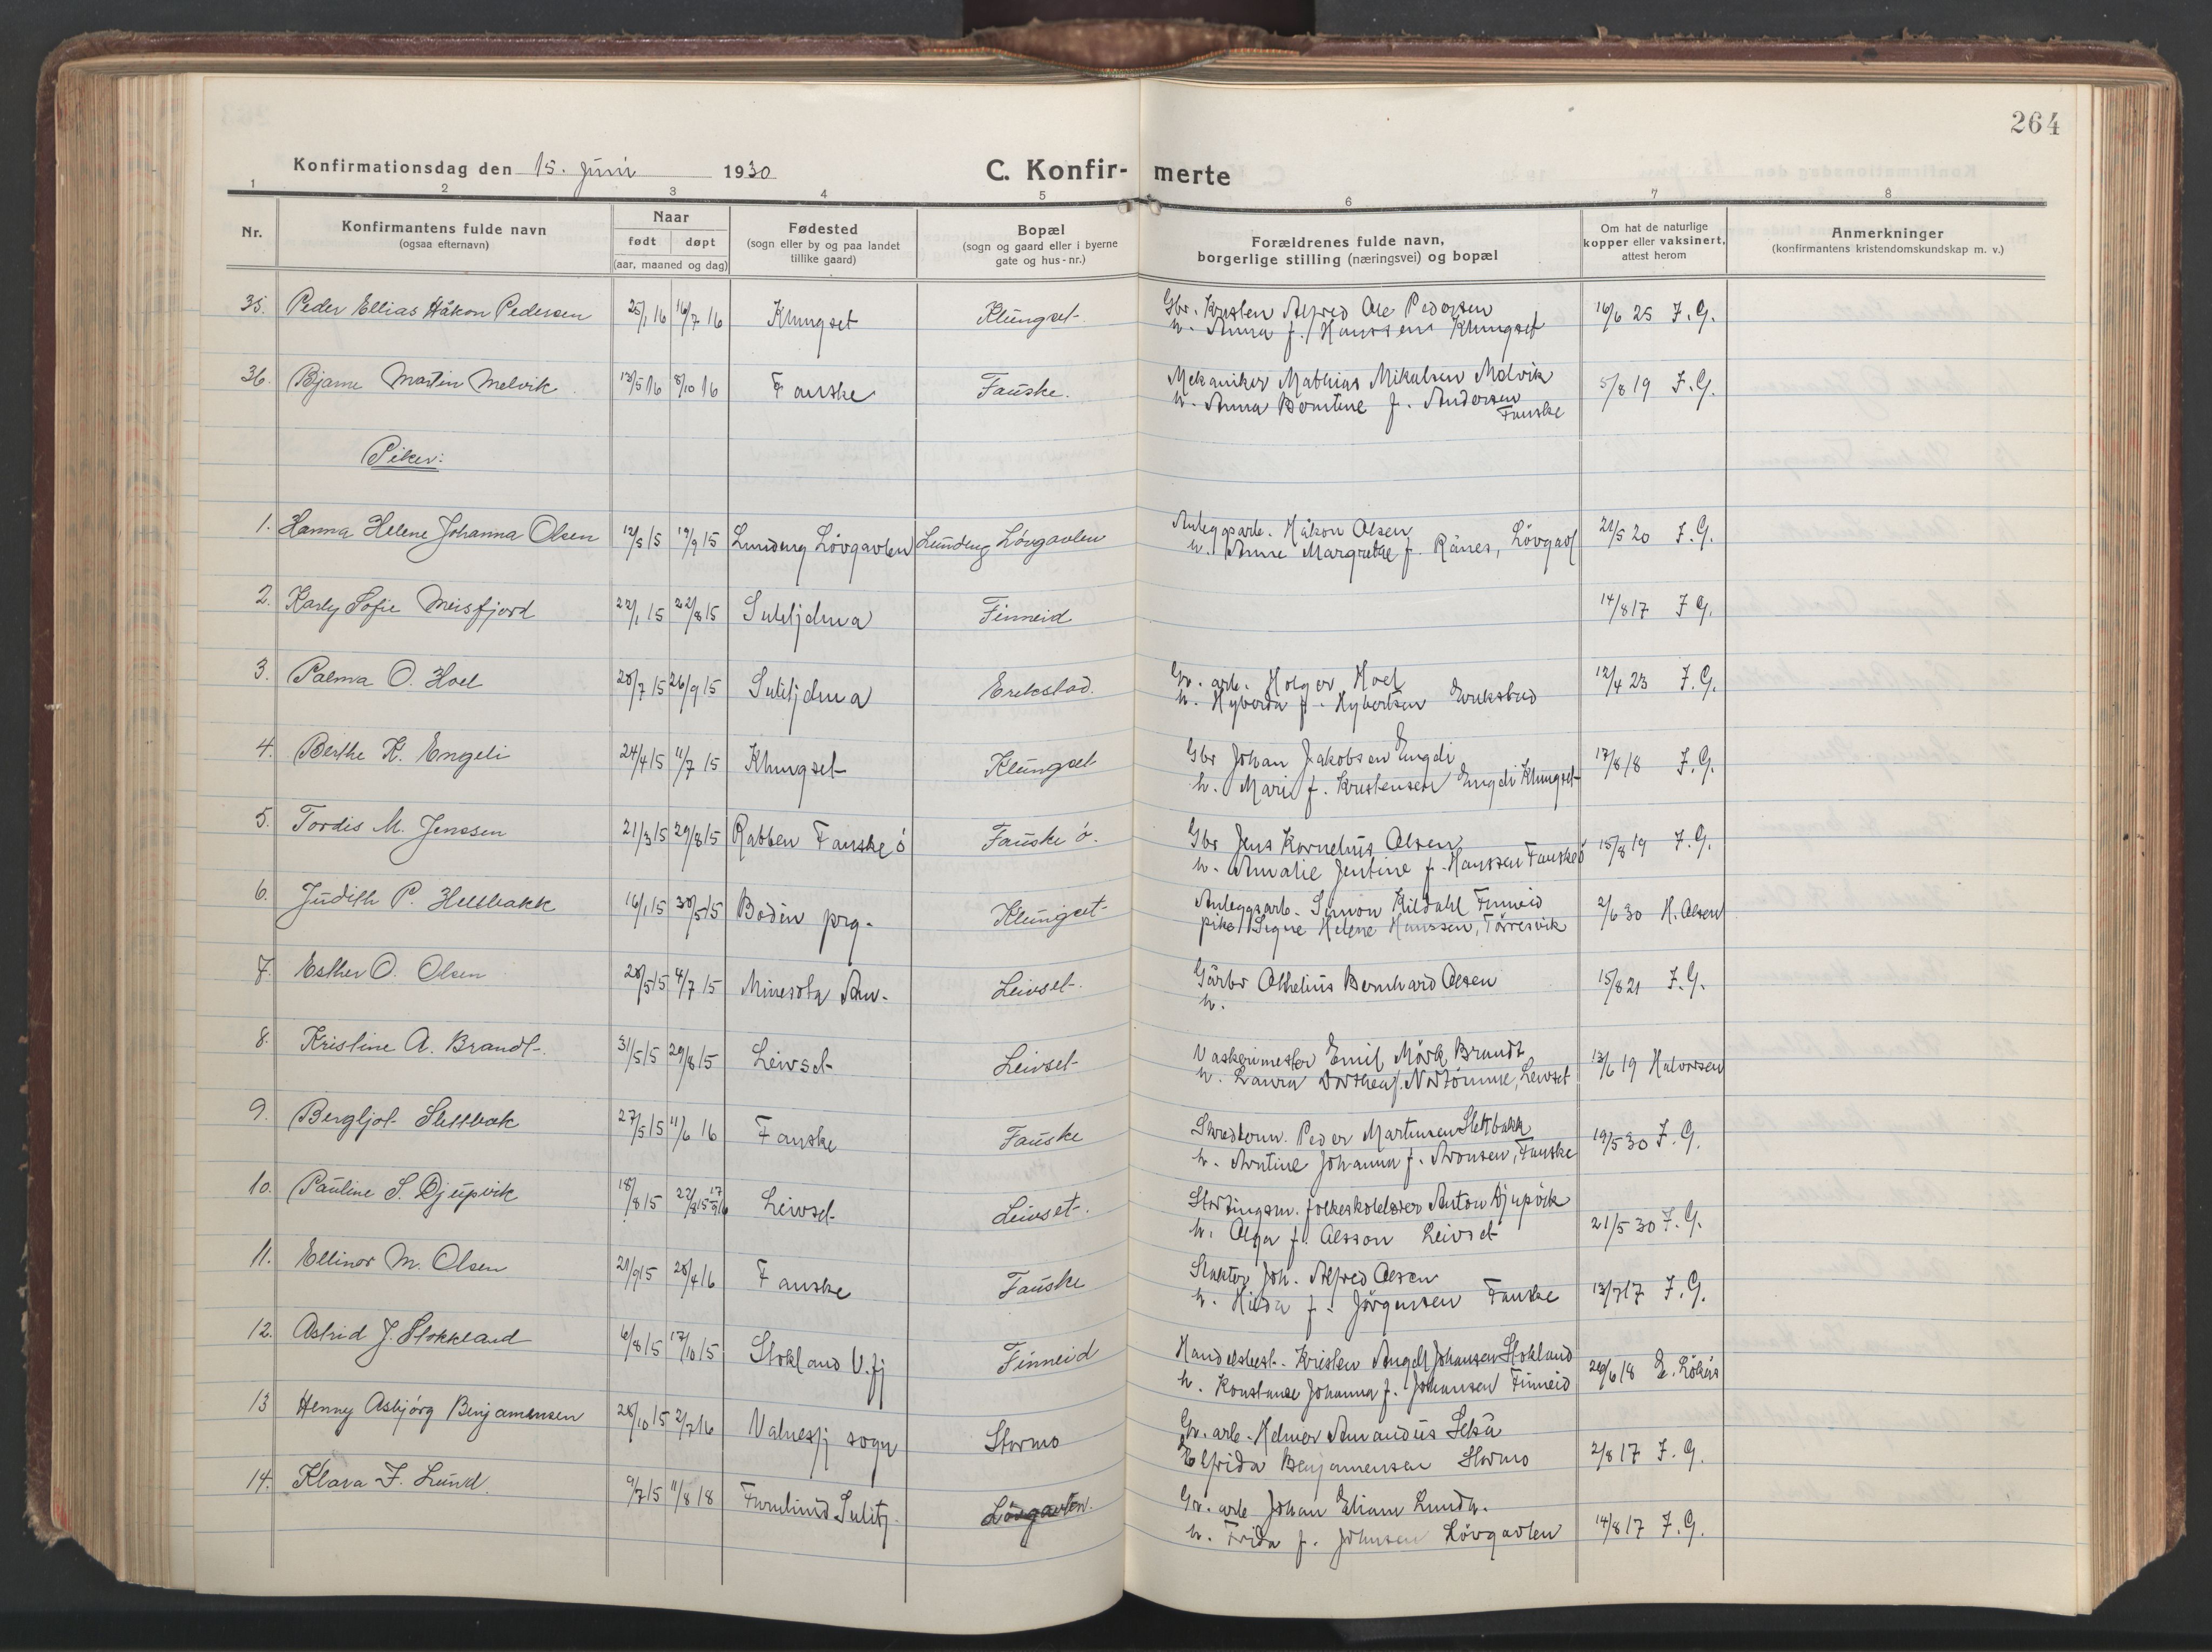 264
Konfirmationsdag den 15. Juni 1930 C. Konfir- merte
1 2 3 4 5 6 7 8
Nr. Konfirmantens fulde navn (ogsaa efternavn) Naar født døpt (aar, maaned og dag) Fødested (sogn eller by og paa landet tillike gaard) Bopæl (sogn og gaard eller i byerne gate og hus-nr.) Forældrenes fulde navn, borgerlige stilling (næringsvei) og bopæl Om hat de naturlige kopper eller vaksinert, attest herom Anmerkninger (konfirmantens kristendomskundskap m. v.)
35. Peder Ellias Håkon Pedersen 25/1 16 16/7 16 Klungset Klungset Gbr. Kristen Alfred Ole Pedersen 16/6 25 F. G.
h. Anna f. Hanssen Klungset
36. Bjarne Martin Melvik 13/5 16 8/10 16 Fauske Fauske. Mekaniker Mathias Mikalsen Melvik 5/8 19 F. G.
h. Anna Berntine f. Andersen
Fauske
Piker:
1. Hanna Helene Johanna Olsen 12/5 15 19/9 15 Lundeng Lövgavlen Lundeng Lövgavlen Anleggsarb. Håkon Olsen 21/5 20 F. G.
h. Anne Margrethe f. Rånes, Lövgavl
2. Karly Sofie Meisfjord 22/1 15 22/8 15 Sulitjelma Finneid 14/8 17 F. G.
3. Palma O. Hoel 28/7 15 26/9 15 Sulitjelma Erikstad. Gr. arb. Holger Hoel 12/4 23 F. G.
h. Hyberda f. Hybertsen Erikstad
4. Berthe K. Engeli 24/4 15 11/7 15 Klungset Klungset Gbr Johan Jakobsen Engeli 17/8 18 F. G.
h. Mari f. Kristensen Engeli Klungset
5. Tordis M. Jenssen 21/3 15 29/8 15 Rabben Fauske ö Fauske ö. Gbr Jens Kornelius Olsen 15/8 19 F. G.
h. Amalie Jentine f. Hanssen Fauske ö
6. Judith P. Hellbakk 16/1 15 30/5 15 Bodin prg. Klungset Anleggsarb. Simon Kildahl Finneid 2/6 30 H. Olsen
pike Signe Helene Hanssen, Törresvik
7. Esther O. Olsen 28/5 15 4/7 15 Minesota Am. Leivset. Gårbr Othelius Bernhard Olsen 15/8 21 F. G.
h.
8. Kristine A. Brandt. 31/5 15 29/8 15 Leivset Leivset Vaskerimester Emil Mörk Brandt 13/6 19 Halvorsen
h. Laura Dorthea f. Nordtömme, Leivset
9. Bergljot Slettbak 27/5 15 11/6 16 Fauske Fauske Skredderm. Peder Martinsen Slettbakk 19/5 30 F. G.
h. Arntine Johanna f. Aronsen, Fauske
10. Pauline S. Djupvik 18/8 15 22/8 15 Leivset Leivset. Stortingsm. folkeskolelærer Anton Djupvik 21/5 30 F. G.
h. Olga f. Olsson Leivset
11. Ellinor M. Olsen 21/9 15 28/4 16 Fauske Fauske Slakter Joh. Alfred Olsen 13/7 17 F. G.
h. Hilda f. Jörgensen Fauske
12. Astrid J. Stokkland 6/8 15 17/10 15 Stokland V.fj Finneid Handelsbest. Kristen Angell Johansen Stokland 20/6 18 E. Lökås
h. Konstanse Johanna f. Johansen Finneid
13 Henny Asbjörg Benjamensen 28/10 15 2/7 16 Valnesfj sogn Stormo Gr. arb. Helmer Amandus Selså 2/8 17 F. G.
Elfrida Benjamensen Stormo
14. Klara F. Lund. 9/7 15 11/8 18 Furulund Sulitj. Lövgavlen. Gr. arb Johan Eliam Lund. 14/8 17 F. G.
h. Frida f. Johnsen Lövgavlen